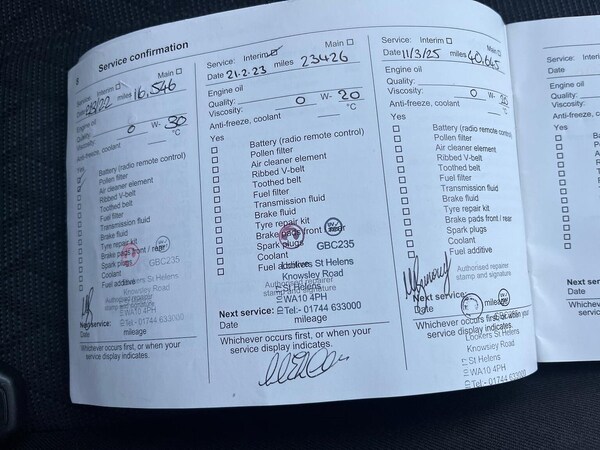 8
Service confirmation
Service: Interim Main
Date miles 16,546
Engine oil
Quality:
Viscosity: 0 W- 30
Anti-freeze, coolant °C
Yes
Battery (radio remote control)
Pollen filter
Air cleaner element
Ribbed V-belt
Toothed belt
Fuel filter
Transmission fluid
Brake fluid
Tyre repair kit
Brake pads front / rear
Spark plugs
Coolant
Fuel additive
Lookers St Helens
Knowsley Road
St Helens
WA10 4PH
Tel:- 01744 633000
Authorised repairer
stamp and signature
Next service:
Date mileage
Whichever occurs first, or when your
service display indicates.
Service: Interim Main
Date 21.2.23 miles 23426
Engine oil
Quality:
Viscosity: 0 W- 20
Anti-freeze, coolant °C
Yes
Battery (radio remote control)
Pollen filter
Air cleaner element
Ribbed V-belt
Toothed belt
Fuel filter
Transmission fluid
Brake fluid
Tyre repair kit
Brake pads front / rear
Spark plugs
Coolant
Fuel additive
GBC235
Lookers St Helens
Knowsley Road
St Helens
WA10 4PH
Tel:- 01744 633000
Authorised repairer
stamp and signature
Next service:
Date mileage
Whichever occurs first, or when your
service display indicates.
Service: Interim Main
Date 11/3/25 miles 40,645
Engine oil
Quality:
Viscosity: 0 W-
Anti-freeze, coolant °C
Yes
Battery (radio remote control)
Pollen filter
Air cleaner element
Ribbed V-belt
Toothed belt
Fuel filter
Transmission fluid
Brake fluid
Tyre repair kit
Brake pads front / rear
Spark plugs
Coolant
Fuel additive
Authorised repairer
stamp and signature
Next service:
Date mileage
Whichever occurs first, or when your
service display indicates.
Lookers St Helens
Knowsley Road
St Helens
WA10 4PH
Tel:- 01744 633000
Service:
Date
Engine oil
Quality:
Viscosity:
Anti-freeze,
Yes
Next service:
Date